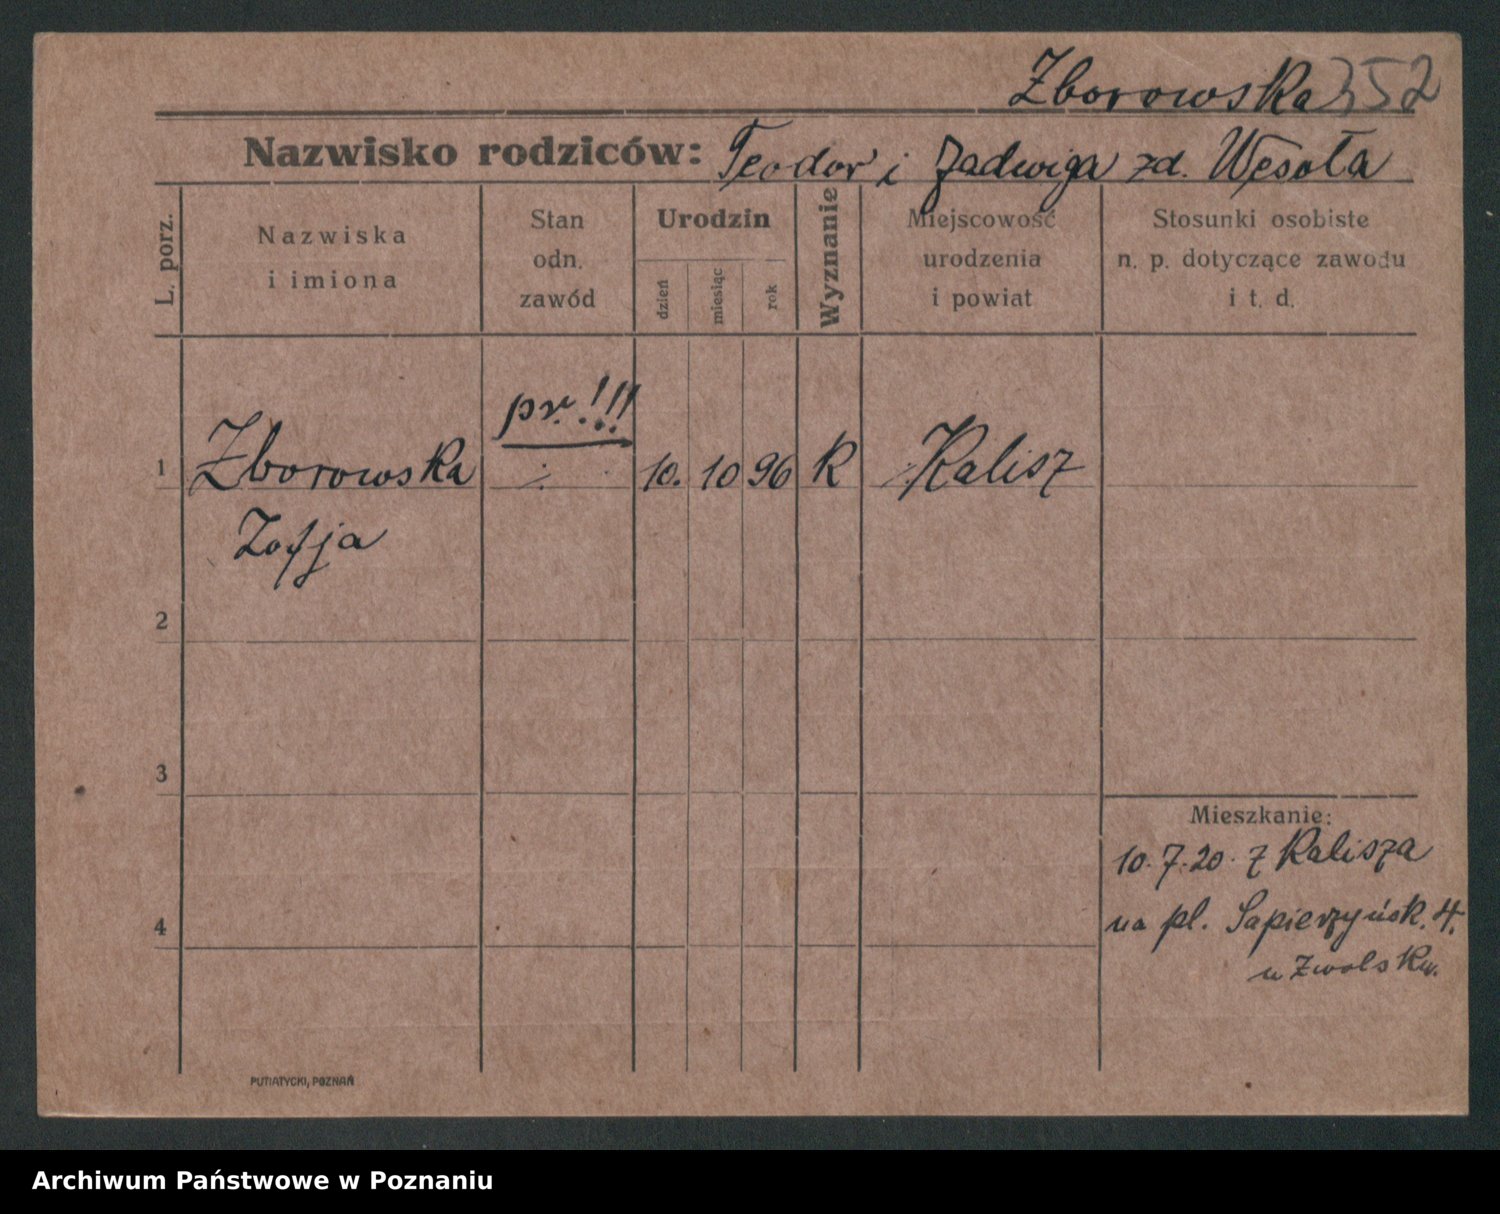 Zborowska 352
Nazwisko rodziców: Teodor i Jadwiga zd. Wesoła
L. porz.
Nazwiska
i imiona
Stan
odn.
zawód
Urodzin
dzień
miesiąc
rok
Wyznanie
Miejscowość
urodzenia
i powiat
Stosunki osobiste
n. p. dotyczące zawodu
i t. d.
pr. !!!
1 Zborowska ÷ 10. 10 96 K Kalisz
Zofja
2
3
Mieszkanie:
10.7.20. z Kalisza
4 na pl. Sapierzyńsk. 4.
u Zwolsku.
PUTIATYCKI, POZNAŃ
Archiwum Państwowe w Poznaniu